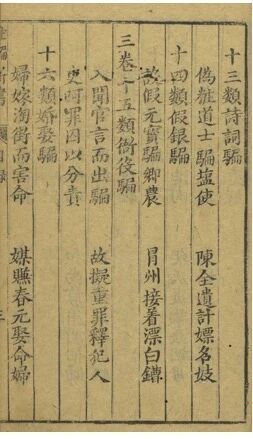 十三類詩詞騙
偽粧道士騙塩使 陳全遺計嫖名妓
十四類假銀騙
設假元寶騙鄉農 冐州接着漂白鏪
三卷十五類衙役騙
入聞官言而出騙 故擬重罪釋犯人
吏呵罪囚以分責
十六類婚娶騙
婦嫁淘街而害命 媒賺春元娶命婦